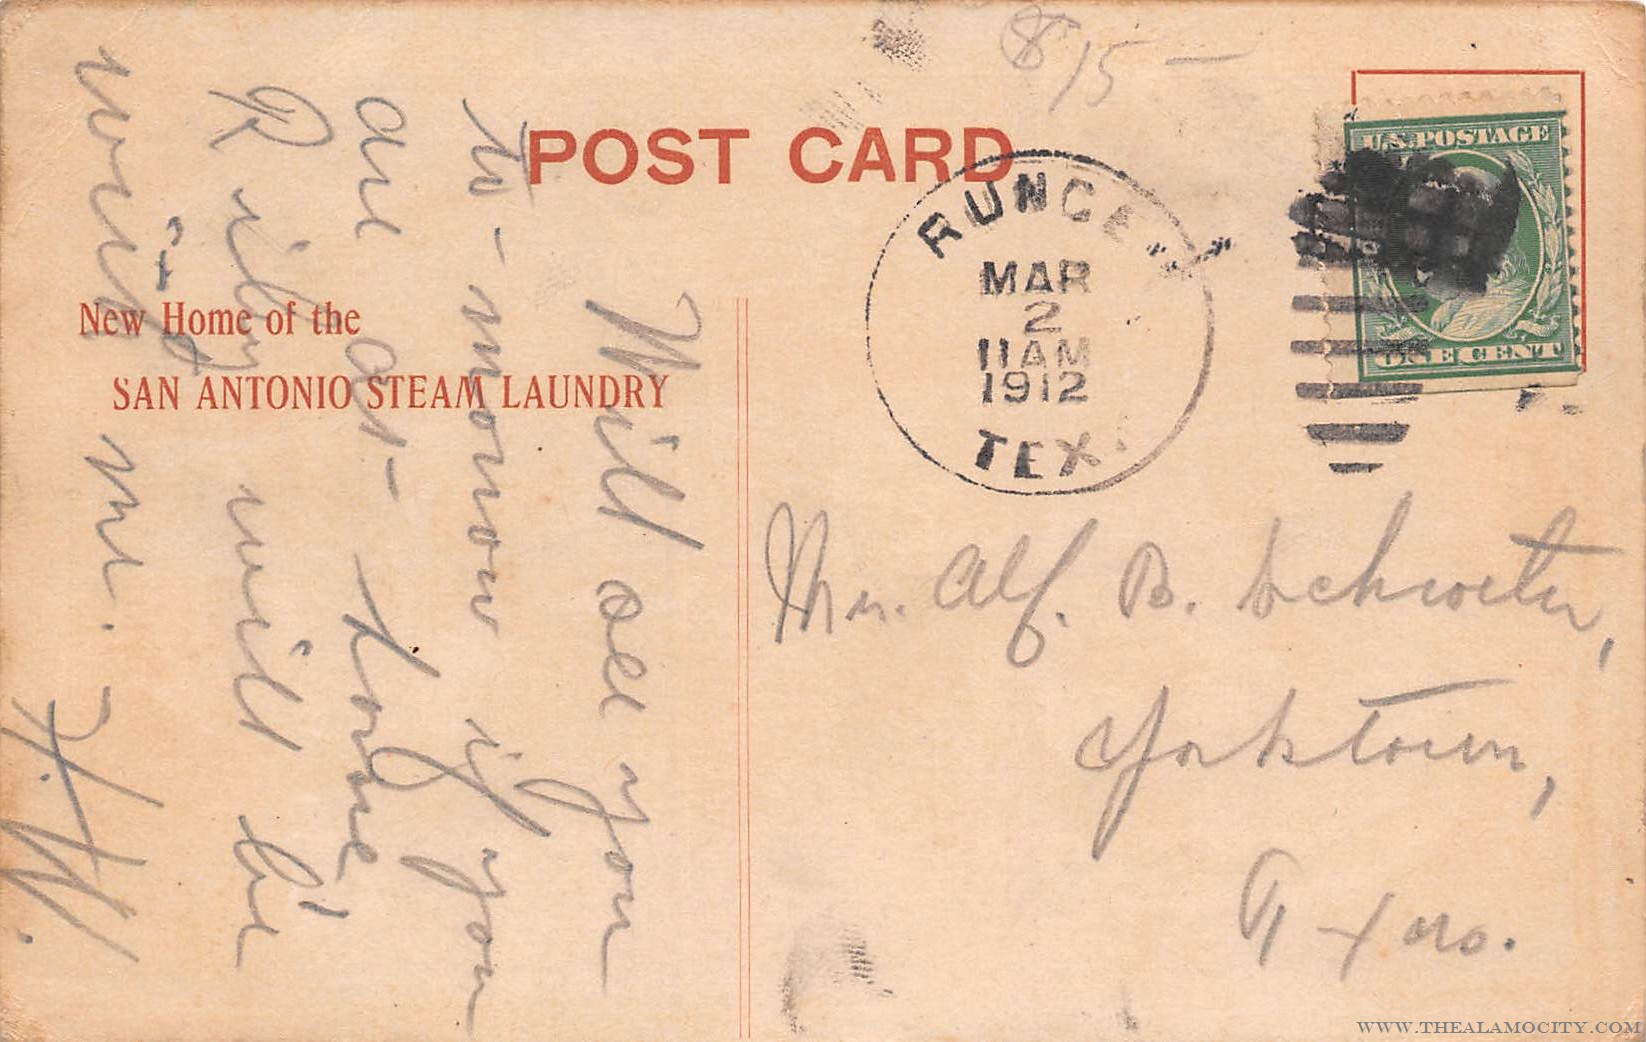 $15 —
POST CARD
U.S. POSTAGE
ONE CENT
RUNGE
MAR
2
11AM
1912
TEX.
New Home of the
SAN ANTONIO STEAM LAUNDRY
Will see you
to-morrow if you
are at home
Riley will be
with me.
H.W.
Mr. Alf. B. Schwetur,
Yorktown,
Texas.
WWW.THEALAMOCITY.COM